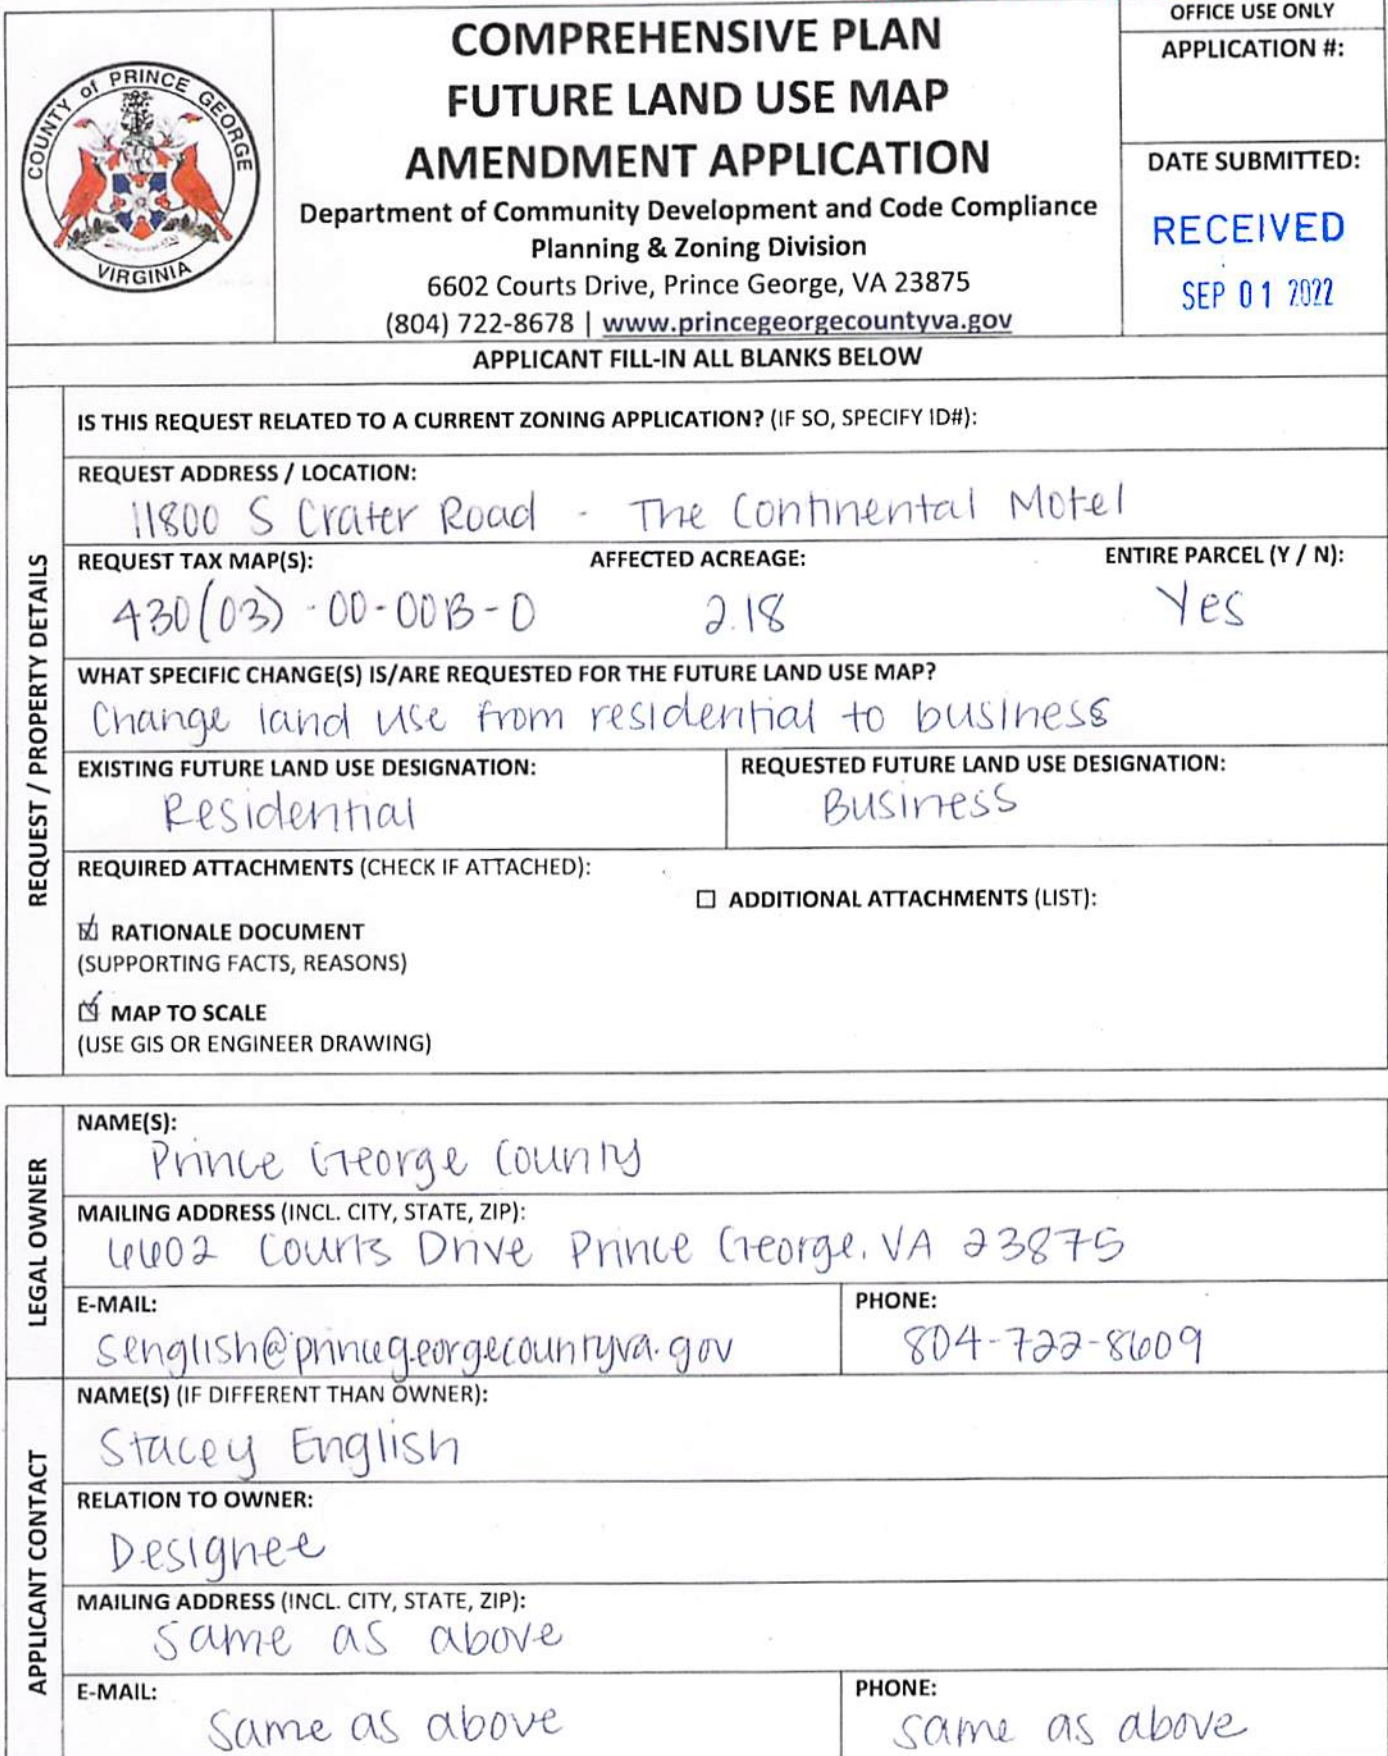 COUNTY of PRINCE GEORGE
VIRGINIA
COMPREHENSIVE PLAN
FUTURE LAND USE MAP
AMENDMENT APPLICATION
Department of Community Development and Code Compliance
Planning & Zoning Division
6602 Courts Drive, Prince George, VA 23875
(804) 722-8678 | www.princegeorgecountyva.gov
OFFICE USE ONLY
APPLICATION #:
DATE SUBMITTED:
RECEIVED
SEP 01 2022
APPLICANT FILL-IN ALL BLANKS BELOW
REQUEST / PROPERTY DETAILS
IS THIS REQUEST RELATED TO A CURRENT ZONING APPLICATION? (IF SO, SPECIFY ID#):
REQUEST ADDRESS / LOCATION:
11800 S Crater Road - The Continental Motel
REQUEST TAX MAP(S): AFFECTED ACREAGE: ENTIRE PARCEL (Y / N):
430(03)-00-00B-0 2.18 Yes
WHAT SPECIFIC CHANGE(S) IS/ARE REQUESTED FOR THE FUTURE LAND USE MAP?
Change land use from residential to business
EXISTING FUTURE LAND USE DESIGNATION:
Residential
REQUESTED FUTURE LAND USE DESIGNATION:
Business
REQUIRED ATTACHMENTS (CHECK IF ATTACHED):
☐ ADDITIONAL ATTACHMENTS (LIST):
☑ RATIONALE DOCUMENT
(SUPPORTING FACTS, REASONS)
☑ MAP TO SCALE
(USE GIS OR ENGINEER DRAWING)
LEGAL OWNER
NAME(S):
Prince George County
MAILING ADDRESS (INCL. CITY, STATE, ZIP):
6602 Courts Drive Prince George, VA 23875
E-MAIL:
senglish@princegeorgecountyva.gov
PHONE:
804-722-8609
APPLICANT CONTACT
NAME(S) (IF DIFFERENT THAN OWNER):
Stacey English
RELATION TO OWNER:
Designee
MAILING ADDRESS (INCL. CITY, STATE, ZIP):
same as above
E-MAIL:
same as above
PHONE:
same as above